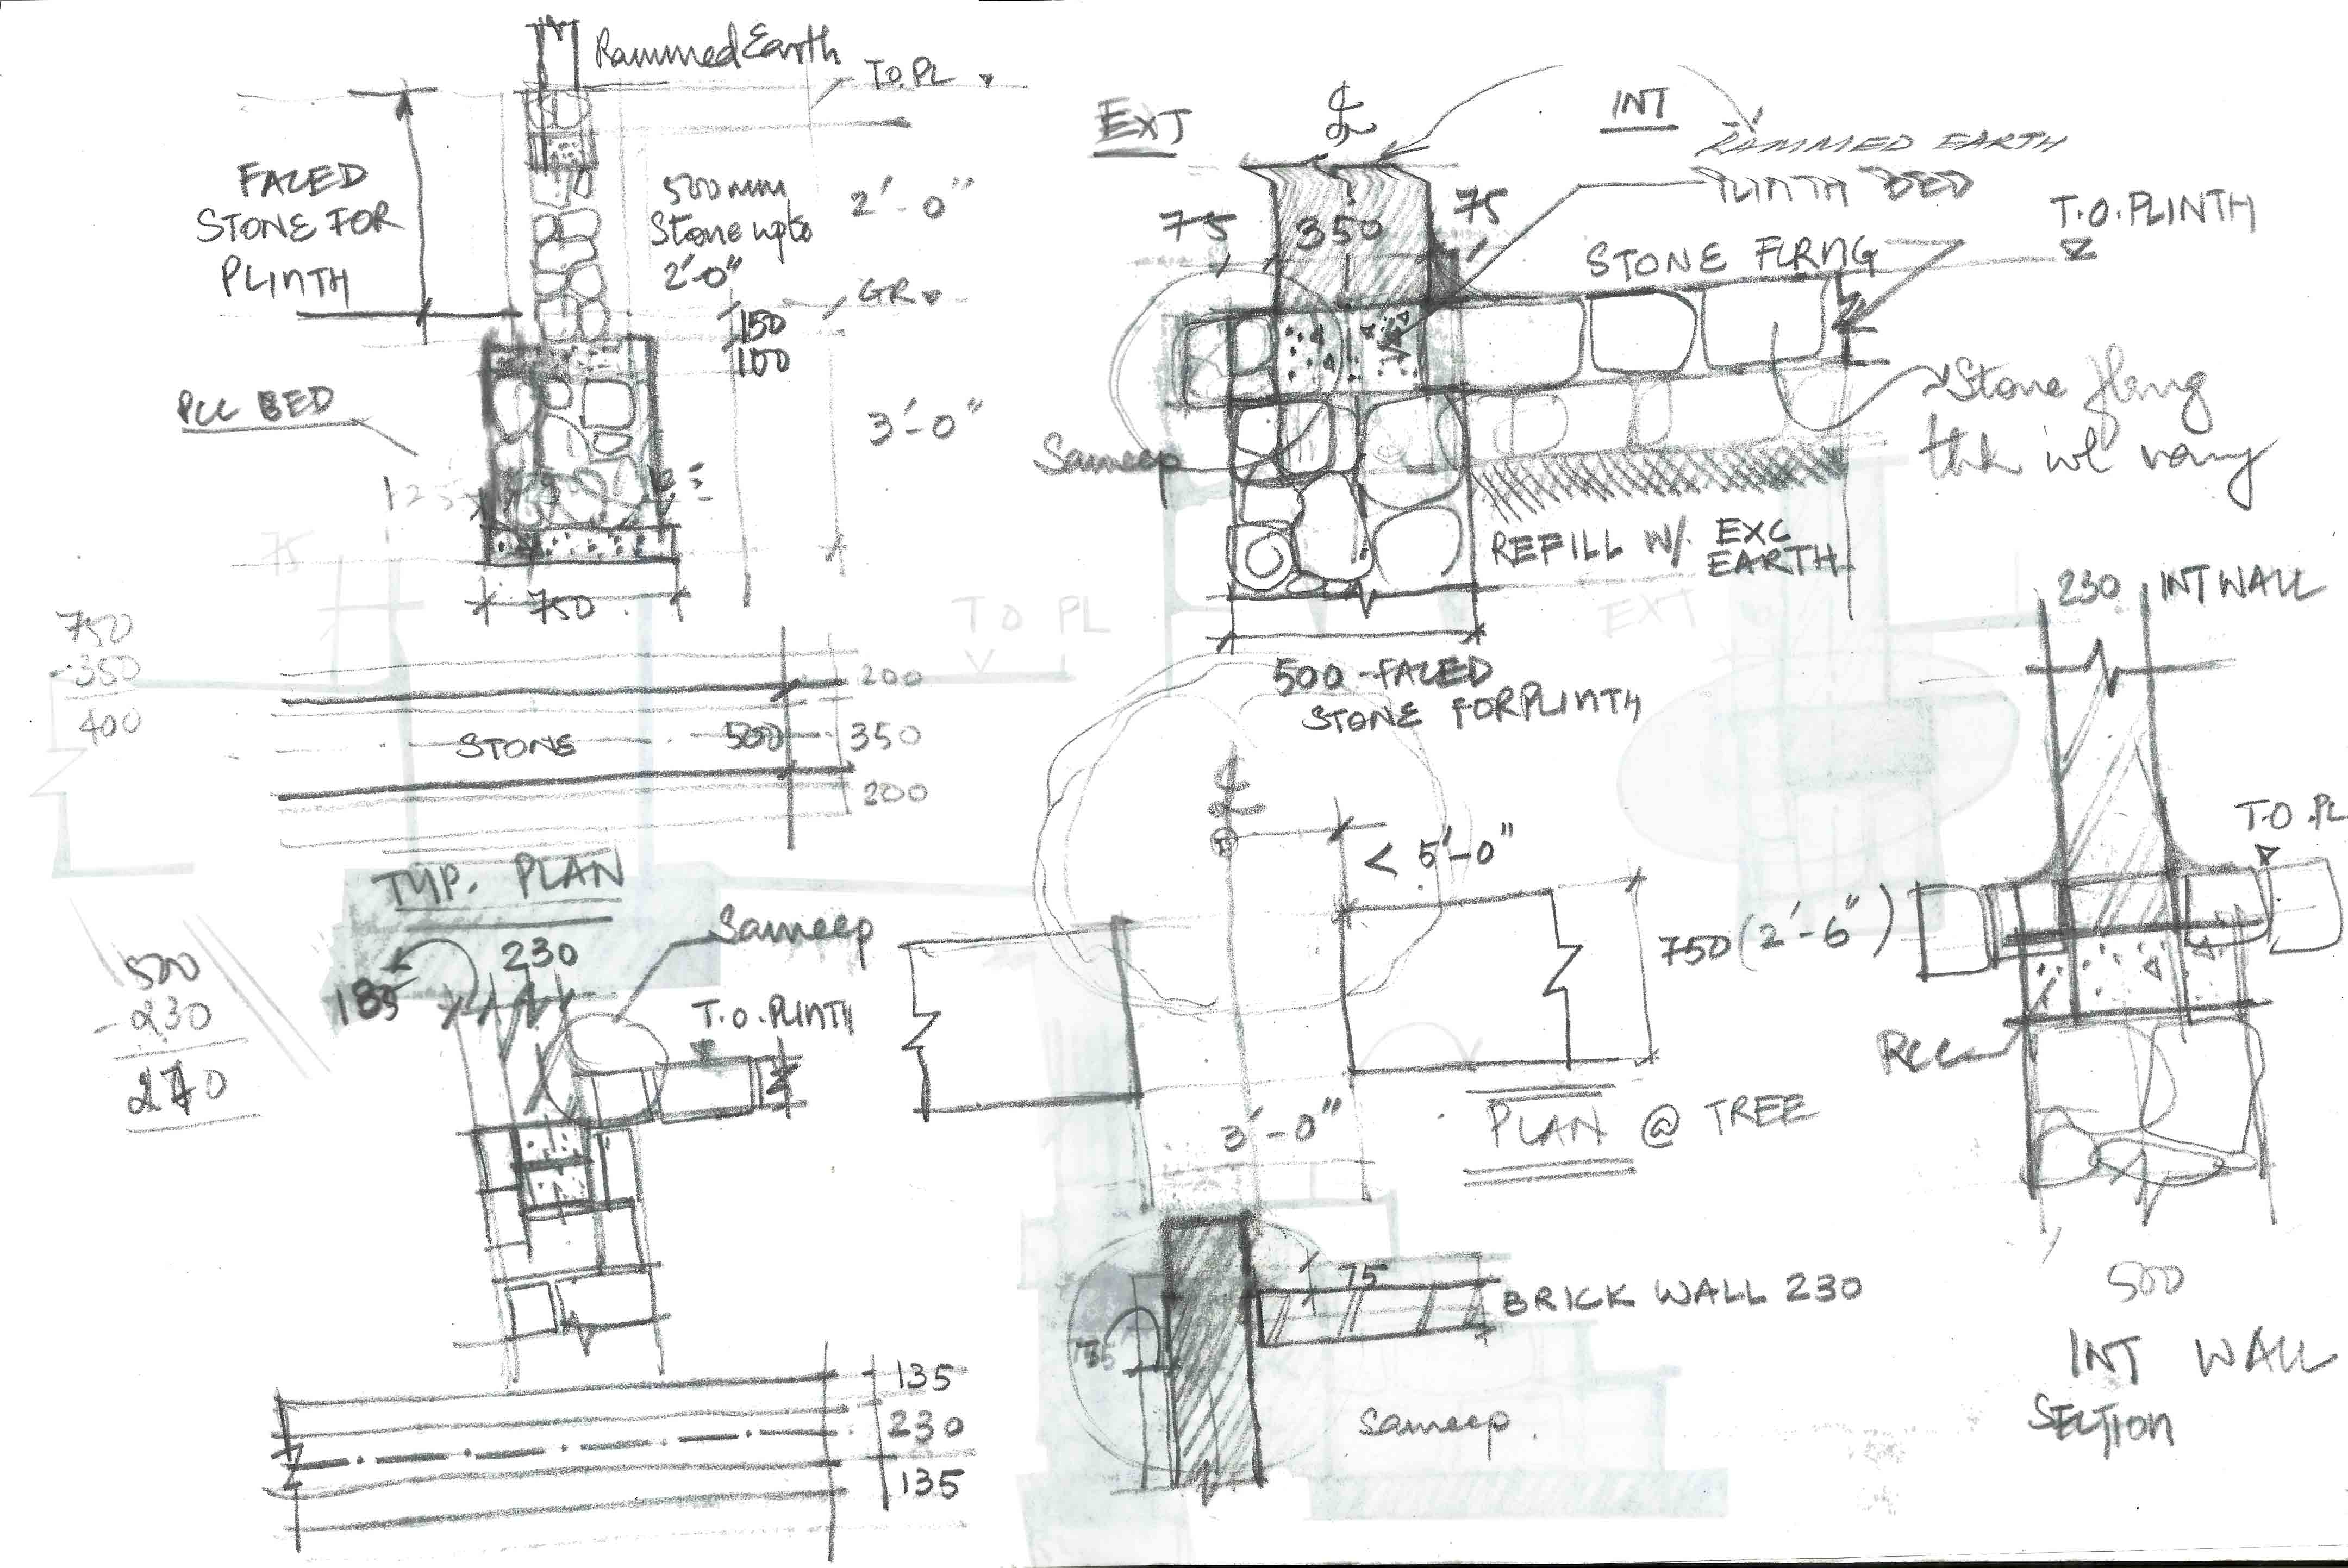 Rammed Earth
T.O.PL
FACED
STONE FOR
PLINTH
500mm
Stone upto
2'-0"
2'-0"
GR
150
100
PCC BED
3'-0"
125
75
750
750
-350
400
200
STONE
500
350
200
TYP. PLAN
EXT
℄
INT
RAMMED EARTH
PLINTH BED
75
350
75
T.O.PLINTH
STONE FLRNG
Stone flrng
thk wl vary
Sameep
REFILL W/. EXC
EARTH
500 - FACED
STONE FOR PLINTH
TO PL
EXT
230
INT WALL
T.O.PL
RCC
500
INT WALL
SECTION
℄
< 5'-0"
750 (2'-6")
3'-0"
PLAN @ TREE
500
-230
270
185
230
Sameep
T.O.PLINTH
135
230
135
75
BRICK WALL 230
Sameep.